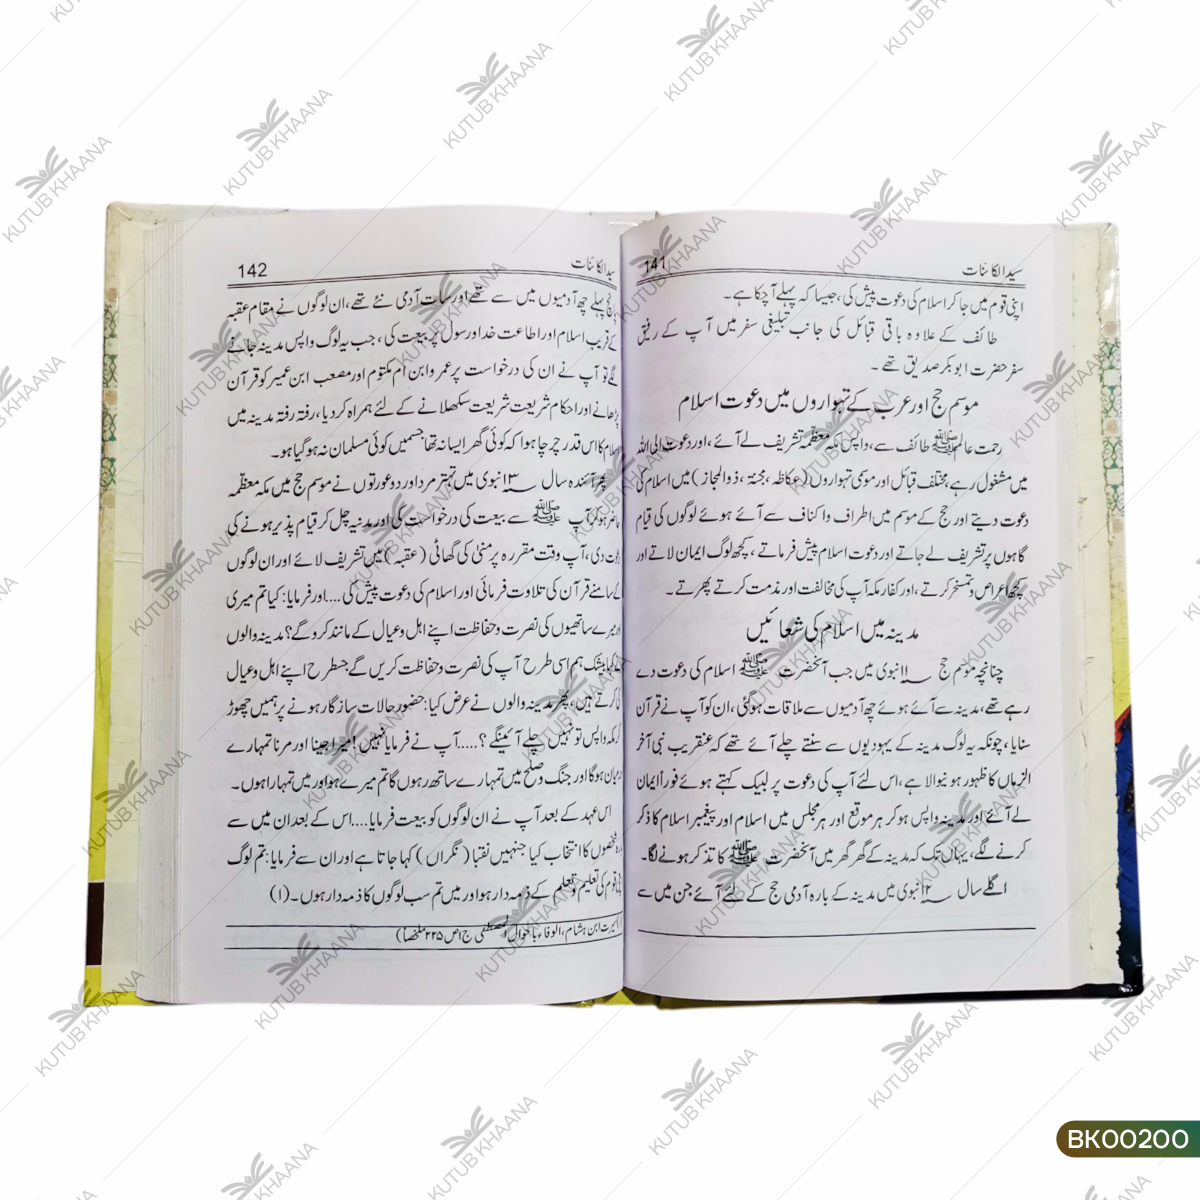 سید الکائنات
141
اپنی قوم میں جا کر اسلام کی دعوت پیش کی، جیسا کہ پہلے آ چکا ہے۔
طائف کے علاوہ باقی قبائل کی جانب تبلیغی سفر میں آپ کے رفیق
سفر حضرت ابوبکر صدیق تھے۔
موسم حج اور عرب کے تہواروں میں دعوت اسلام
رحمت عالم ﷺ طائف سے، واپس مکہ معظمہ تشریف لے آئے، اور دعوت الی اللہ
میں مشغول رہے، مختلف قبائل اور موسمی تہواروں (عکاظ، مجنۃ، ذوالمجاز) میں اسلام کی
دعوت دیتے اور حج کے موسم میں اطراف و اکناف سے آئے ہوئے لوگوں کی قیام
گاہوں پر تشریف لے جاتے اور دعوت اسلام پیش فرماتے، کچھ لوگ ایمان لاتے اور
کچھ اعراض و تمسخر کرتے، اور کفار مکہ آپ کی مخالفت اور مذمت کرتے پھرتے۔
مدینہ میں اسلام کی شعائیں
چنانچہ موسم حج ۱۱؁ نبوی میں جب آنحضرت ﷺ اسلام کی دعوت دے
رہے تھے، مدینہ سے آئے ہوئے چھ آدمیوں سے ملاقات ہوگئی، ان کو آپ نے قرآن
سنایا، چونکہ یہ لوگ مدینہ کے یہودیوں سے سنتے چلے آئے تھے کہ عنقریب نبی آخر
الزماں کا ظہور ہونیوالا ہے، اس لئے آپ کی دعوت پر لبیک کہتے ہوئے فوراً ایمان
لے آئے اور مدینہ واپس ہو کر ہر موقع اور ہر مجلس میں اسلام اور پیغمبر اسلام کا ذکر
کرنے لگے، یہاں تک کہ مدینہ کے گھر گھر میں آنحضرت ﷺ کا تذکر ہونے لگا۔
اگلے سال ۱۲؁ نبوی میں مدینہ کے بارہ آدمی حج کے لئے آئے جن میں سے
سید الکائنات
142
پانچ پہلے چھ آدمیوں میں سے تھے اور سات آدمی نئے تھے، ان لوگوں نے مقام عقبہ
کے قریب اسلام اور اطاعت خدا و رسول پر بیعت کی، جب یہ لوگ واپس مدینہ جانے
لگے تو آپ نے ان کی درخواست پر عمرو ابن اُم مکتوم اور مصعب ابن عمیر کو قرآن
پڑھانے اور احکام شریعت شریعت سکھلانے کے لئے ہمراہ کر دیا، رفتہ رفتہ مدینہ میں
اسلام کا اس قدر چرچا ہوا کہ کوئی گھر ایسا نہ تھا جسمیں کوئی مسلمان نہ ہو گیا ہو۔
پھر آئندہ سال ۱۳؁ نبوی میں تہتر مرد اور دو عورتوں نے موسم حج میں مکہ معظمہ
حاضر ہو کر آپ ﷺ سے بیعت کی درخواست کی اور مدینہ چل کر قیام پذیر ہونے کی
دعوت دی، آپ وقت مقررہ پر منیٰ کی گھاٹی (عقبہ) میں تشریف لائے اور ان لوگوں
کے سامنے قرآن کی تلاوت فرمائی اور اسلام کی دعوت پیش کی....اور فرمایا: کیا تم میری
اور میرے ساتھیوں کی نصرت و حفاظت اپنے اہل و عیال کے مانند کرو گے؟ مدینہ والوں
نے کہا بیشک ہم اسی طرح آپ کی نصرت و حفاظت کریں گے جسطرح اپنے اہل و عیال
کی کرتے ہیں، پھر مدینہ والوں نے عرض کیا: حضور حالات سازگار ہونے پر ہمیں چھوڑ
کر مکہ واپس تو نہیں چلے آئینگے؟.....آپ نے فرمایا نہیں! میرا جینا اور مرنا تمہارے
درمیان ہوگا اور جنگ و صلح میں تمہارے ساتھ رہوں گا تم میرے ہو اور میں تمہارا ہوں۔
اس عہد کے بعد آپ نے ان لوگوں کو بیعت فرمایا....اس کے بعد ان میں سے
بارہ شخصوں کا انتخاب کیا جنہیں نقبا (نگراں) کہا جاتا ہے اور ان سے فرمایا: تم لوگ
اپنی قوم کی تعلیم و تعلم کے ذمہ دار ہو اور میں تم سب لوگوں کا ذمہ دار ہوں۔ (۱)
(۱) سیرت ابن ہشام، الوفاء باحوال المصطفی ج۱ص ۲۲۵ ملخصاً)
KUTUB KHAANA
BK00200